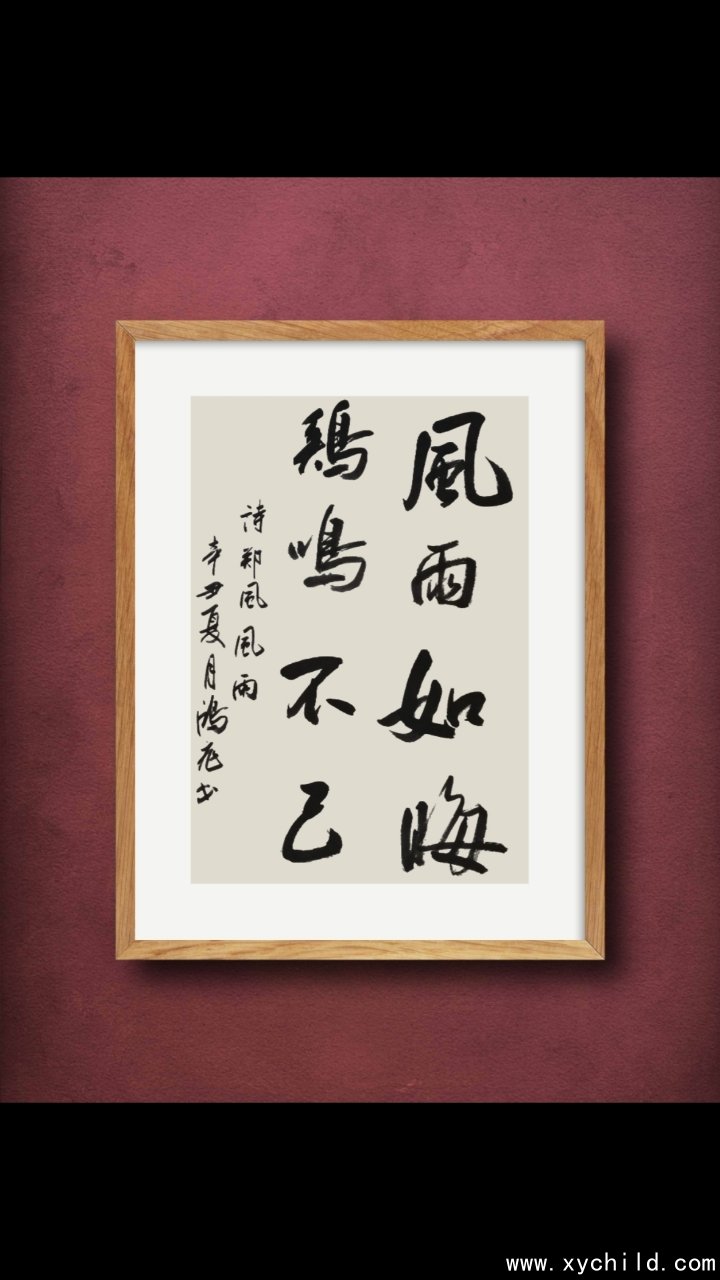 風雨如晦
鷄鳴不已
诗郑风風雨
辛丑夏月鴻元书
www.xychild.com